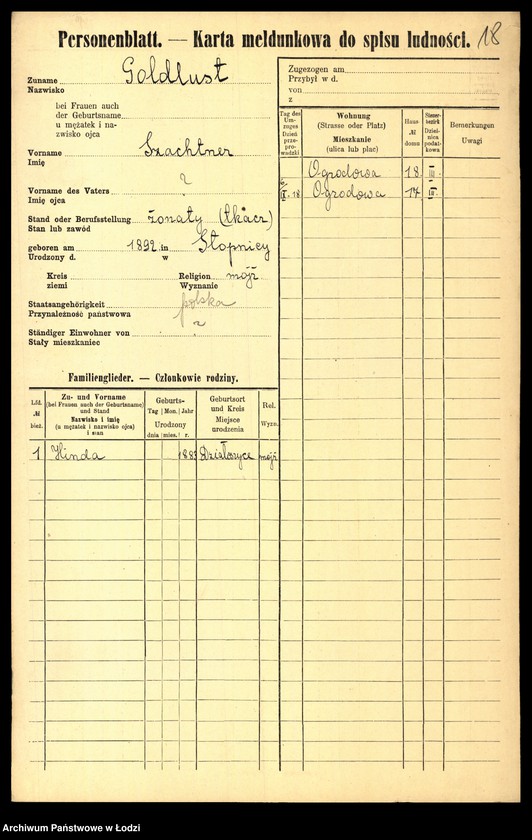 Personenblatt. — Karta meldunkowa do spisu ludności. 18
Zuname Goldlust
Nazwisko
bei Frauen auch
der Geburtsname
u mężatek i na-
zwisko ojca
Vorname Szachtner
Imię
Vorname des Vaters ?
Imię ojca
Stand oder Berufsstellung żonaty (tkacz)
Stan lub zawód
geboren am 1892 in Stopnicy
Urodzony d. w
Kreis Religion mojż
ziemi Wyznanie
Staatsangehörigkeit polska
Przynależność państwowa
Ständiger Einwohner von
Stały mieszkaniec
Zugezogen am
Przybył w d.
von
z
Tag des Um-zuges Dzień prze-prowadzki
Wohnung
(Strasse oder Platz)
Mieszkanie
(ulica lub plac)
Haus-
№
domu
Steuer-bezirk Dziel-nica podat-kowa
Bemerkungen
Uwagi
Ogrodowa 18 III
IX 18 Ogrodowa 17 III
Familienglieder. — Członkowie rodziny.
Lfd.
№
bież.
Zu- und Vorname
(bei Frauen auch der Geburtsname)
und Stand
Nazwisko i imię
(u mężatek i nazwisko ojca)
i stan
Geburts-
Tag Mon. Jahr
Urodzony
dnia mies. r.
Geburtsort
und Kreis
Miejsce
urodzenia
Rel.
Wyzn.
1 Hinda 1883 Działoszyce mojż
Archiwum Państwowe w Łodzi